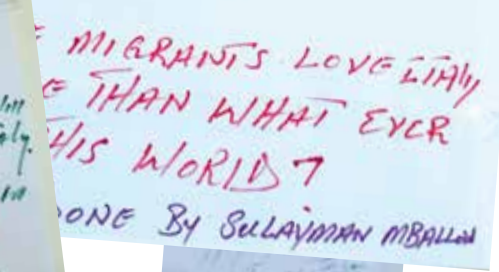 MIGRANTS LOVE ITALY
THAN WHAT EVER
THIS WORLD?
DONE BY SULAYMAN MBALLOW